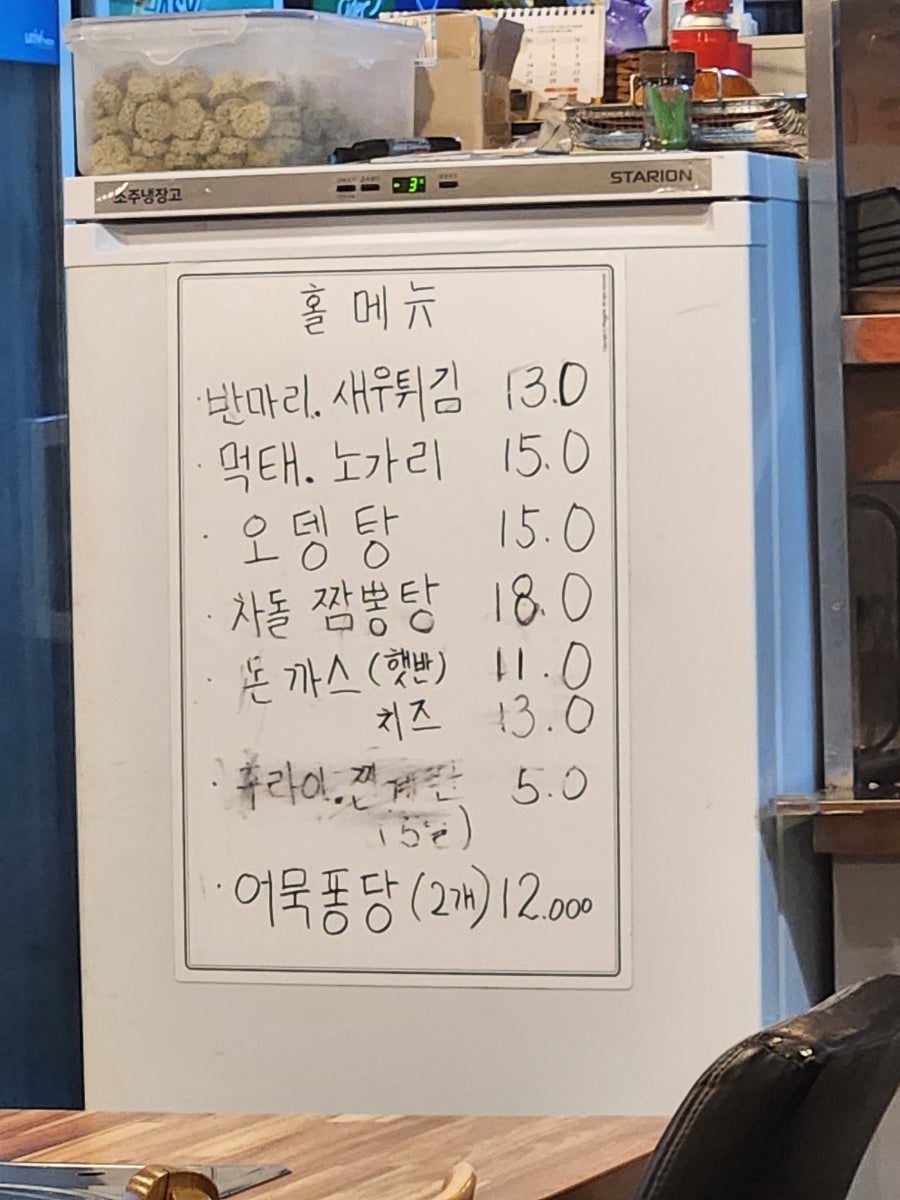 소주냉장고
STARION
홀 메뉴
· 반마리. 새우튀김 13.0
· 먹태. 노가리 15.0
· 오뎅탕 15.0
· 차돌 짬뽕탕 18.0
· 돈까스 (햇반) 11.0
치즈 13.0
· 후라이. 찐계란 5.0
· 어묵퐁당 (2개) 12.000